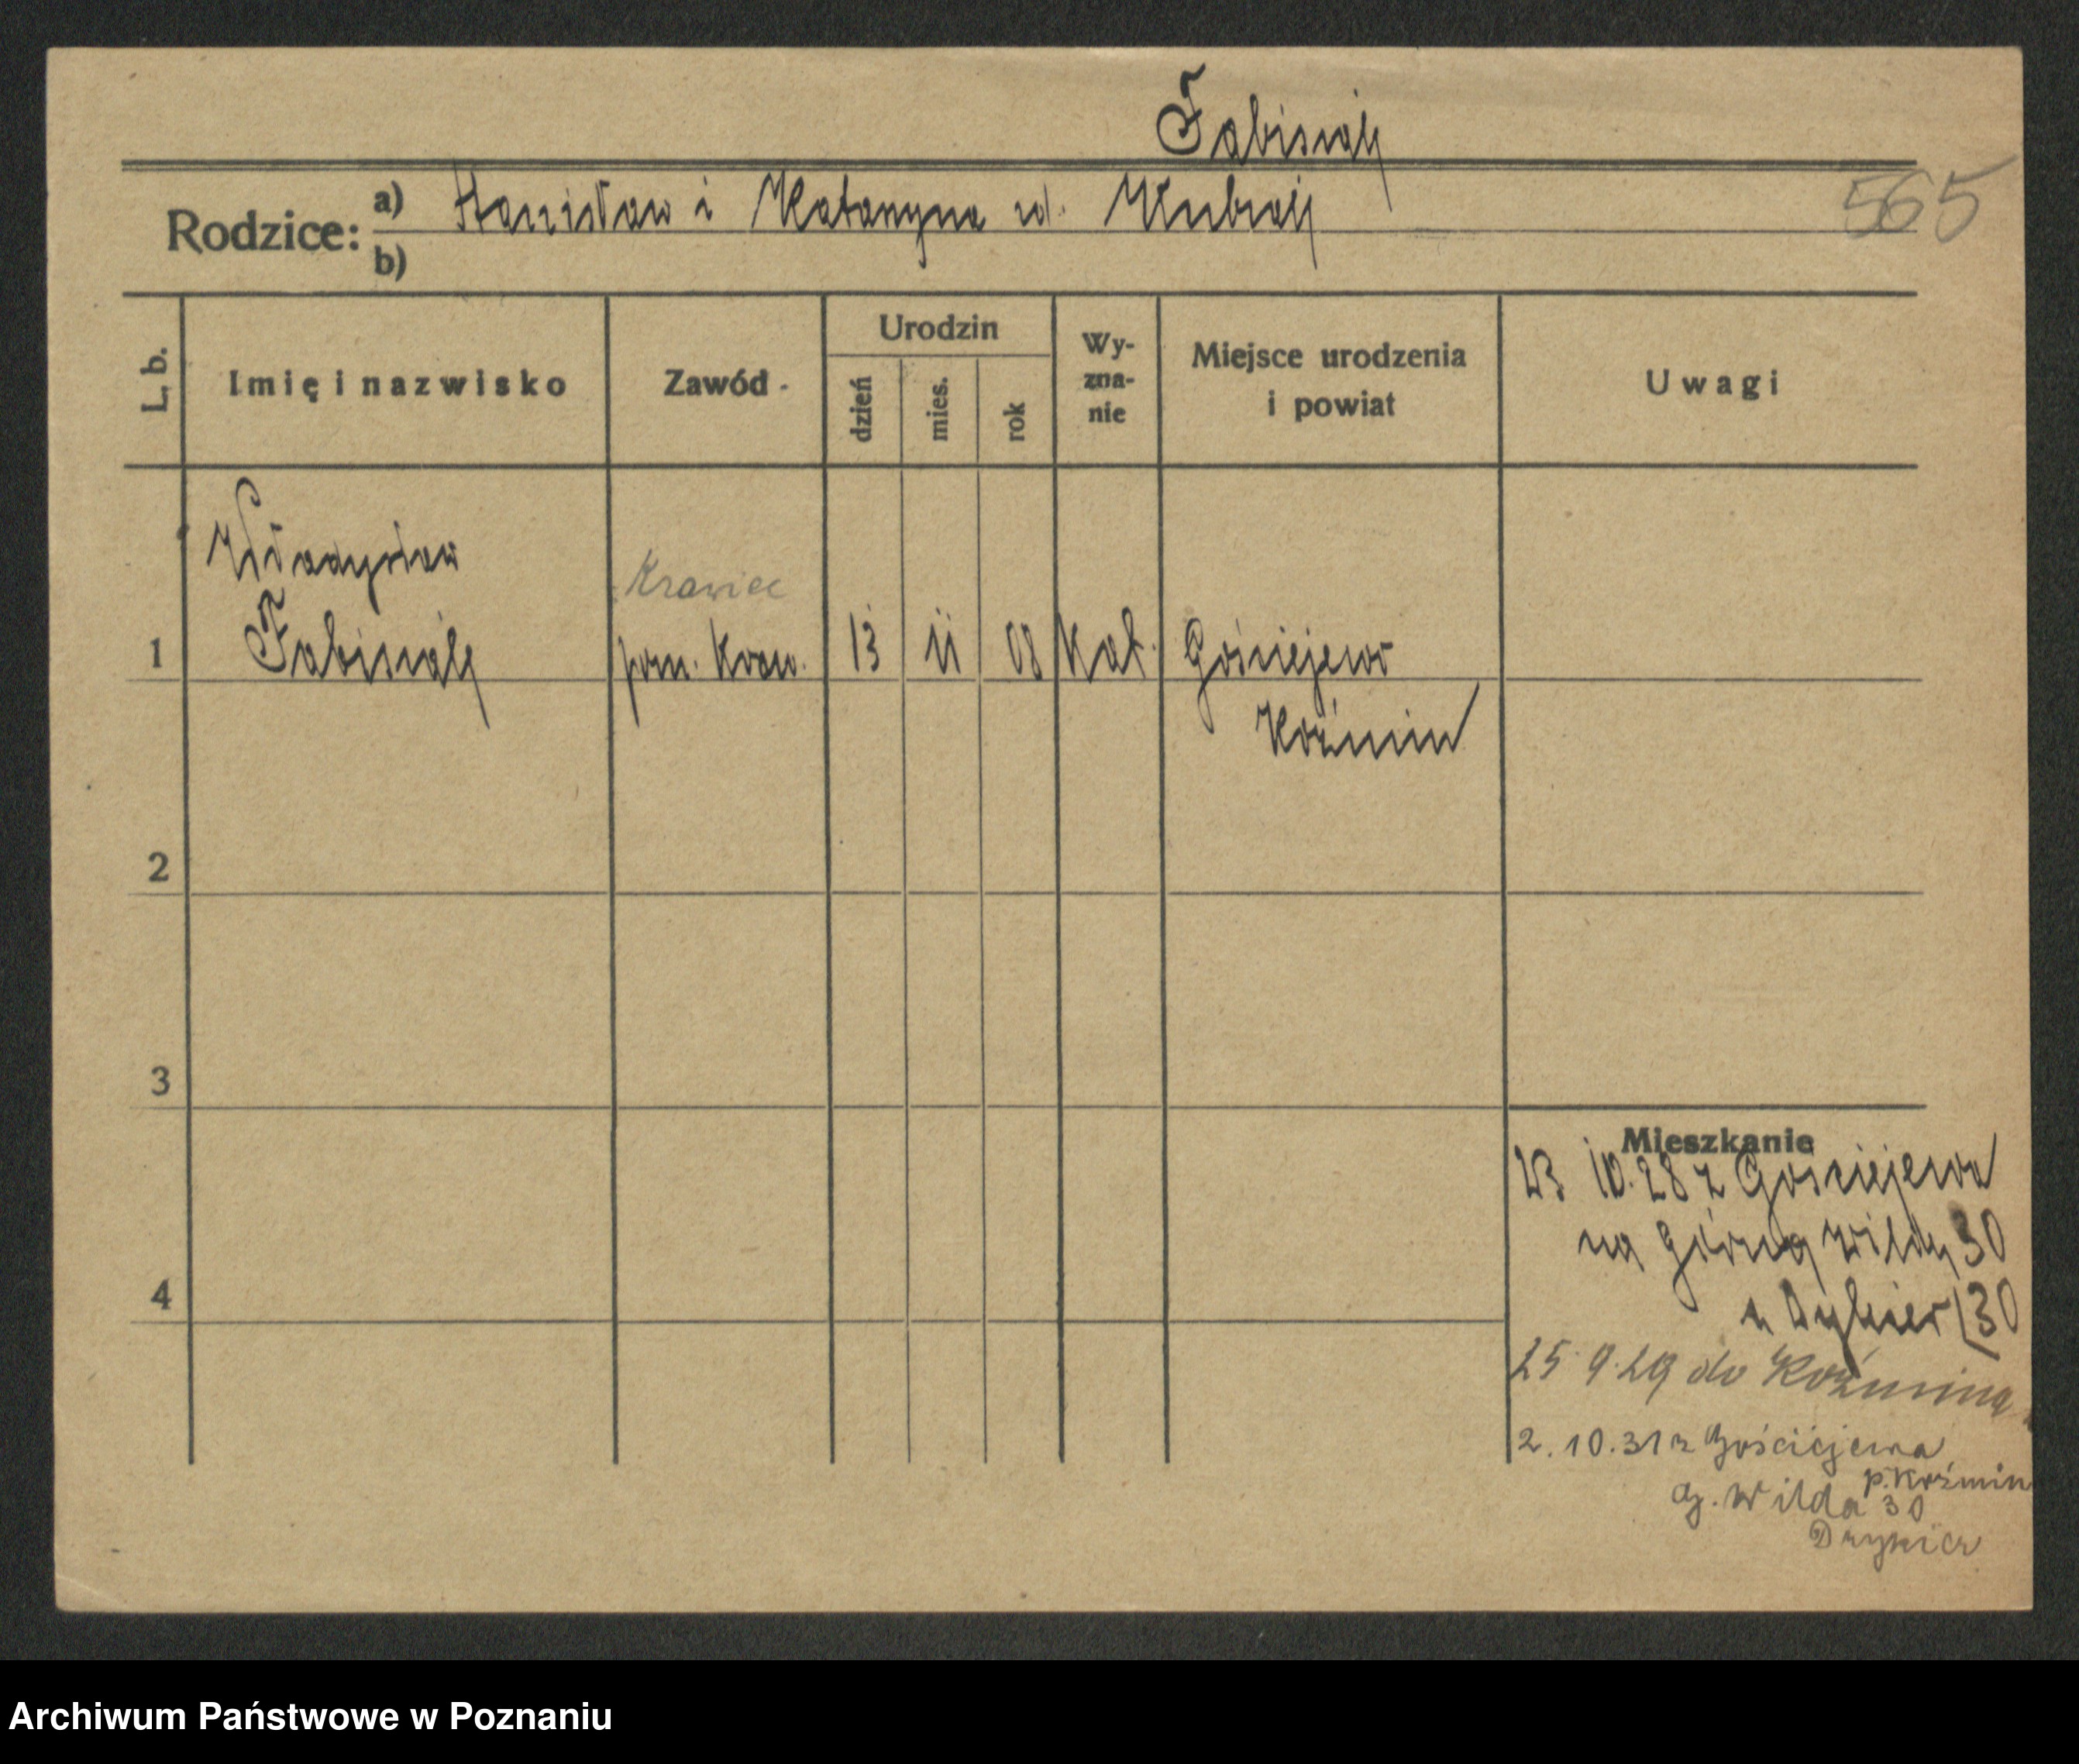 Fabisiak
565
Rodzice: a) Stanisław i Katarzyna ur. Kubiak
b)
L. b. Imię i nazwisko Zawód Urodzin dzień mies. rok Wy-zna-nie Miejsce urodzenia i powiat Uwagi
Władysław
Krawiec
1 Fabisiak pom. kraw. 13 11 08 kat. Gościejewo
Koźmin
2
3
Mieszkanie
23 10.28 z Gościejewa
na Górną Wildę 30
4
u 30
25 9.29 do Koźmina
2.10.31 z Gościejewa
p. Koźmin
G. Wilda 30
Archiwum Państwowe w Poznaniu